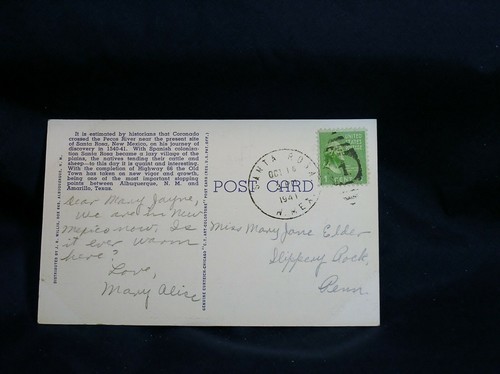 It is estimated by historians that Coronado
crossed the Pecos River near the present site
of Santa Rosa, New Mexico, on his journey of
discovery in 1540-41. With Spanish coloniza-
tion Santa Rosa became a lazy village of the
plains, the natives tending their cattle and
sheep—to this day it is quaint and interesting.
With the completion of Highway 66 the Old
Town has taken on new vigor and growth,
being one of the most important stopping
points between Albuquerque, N. M. and
Amarillo, Texas.
POST CARD
SANTA ROSA
OCT 16
1941
N. MEX.
Dear Mary Jayne,
We are in New
Mexico now. Is
it ever warm
here?
Love,
Mary Alice
Miss Mary Jane Elder
Slippery Rock,
Penn